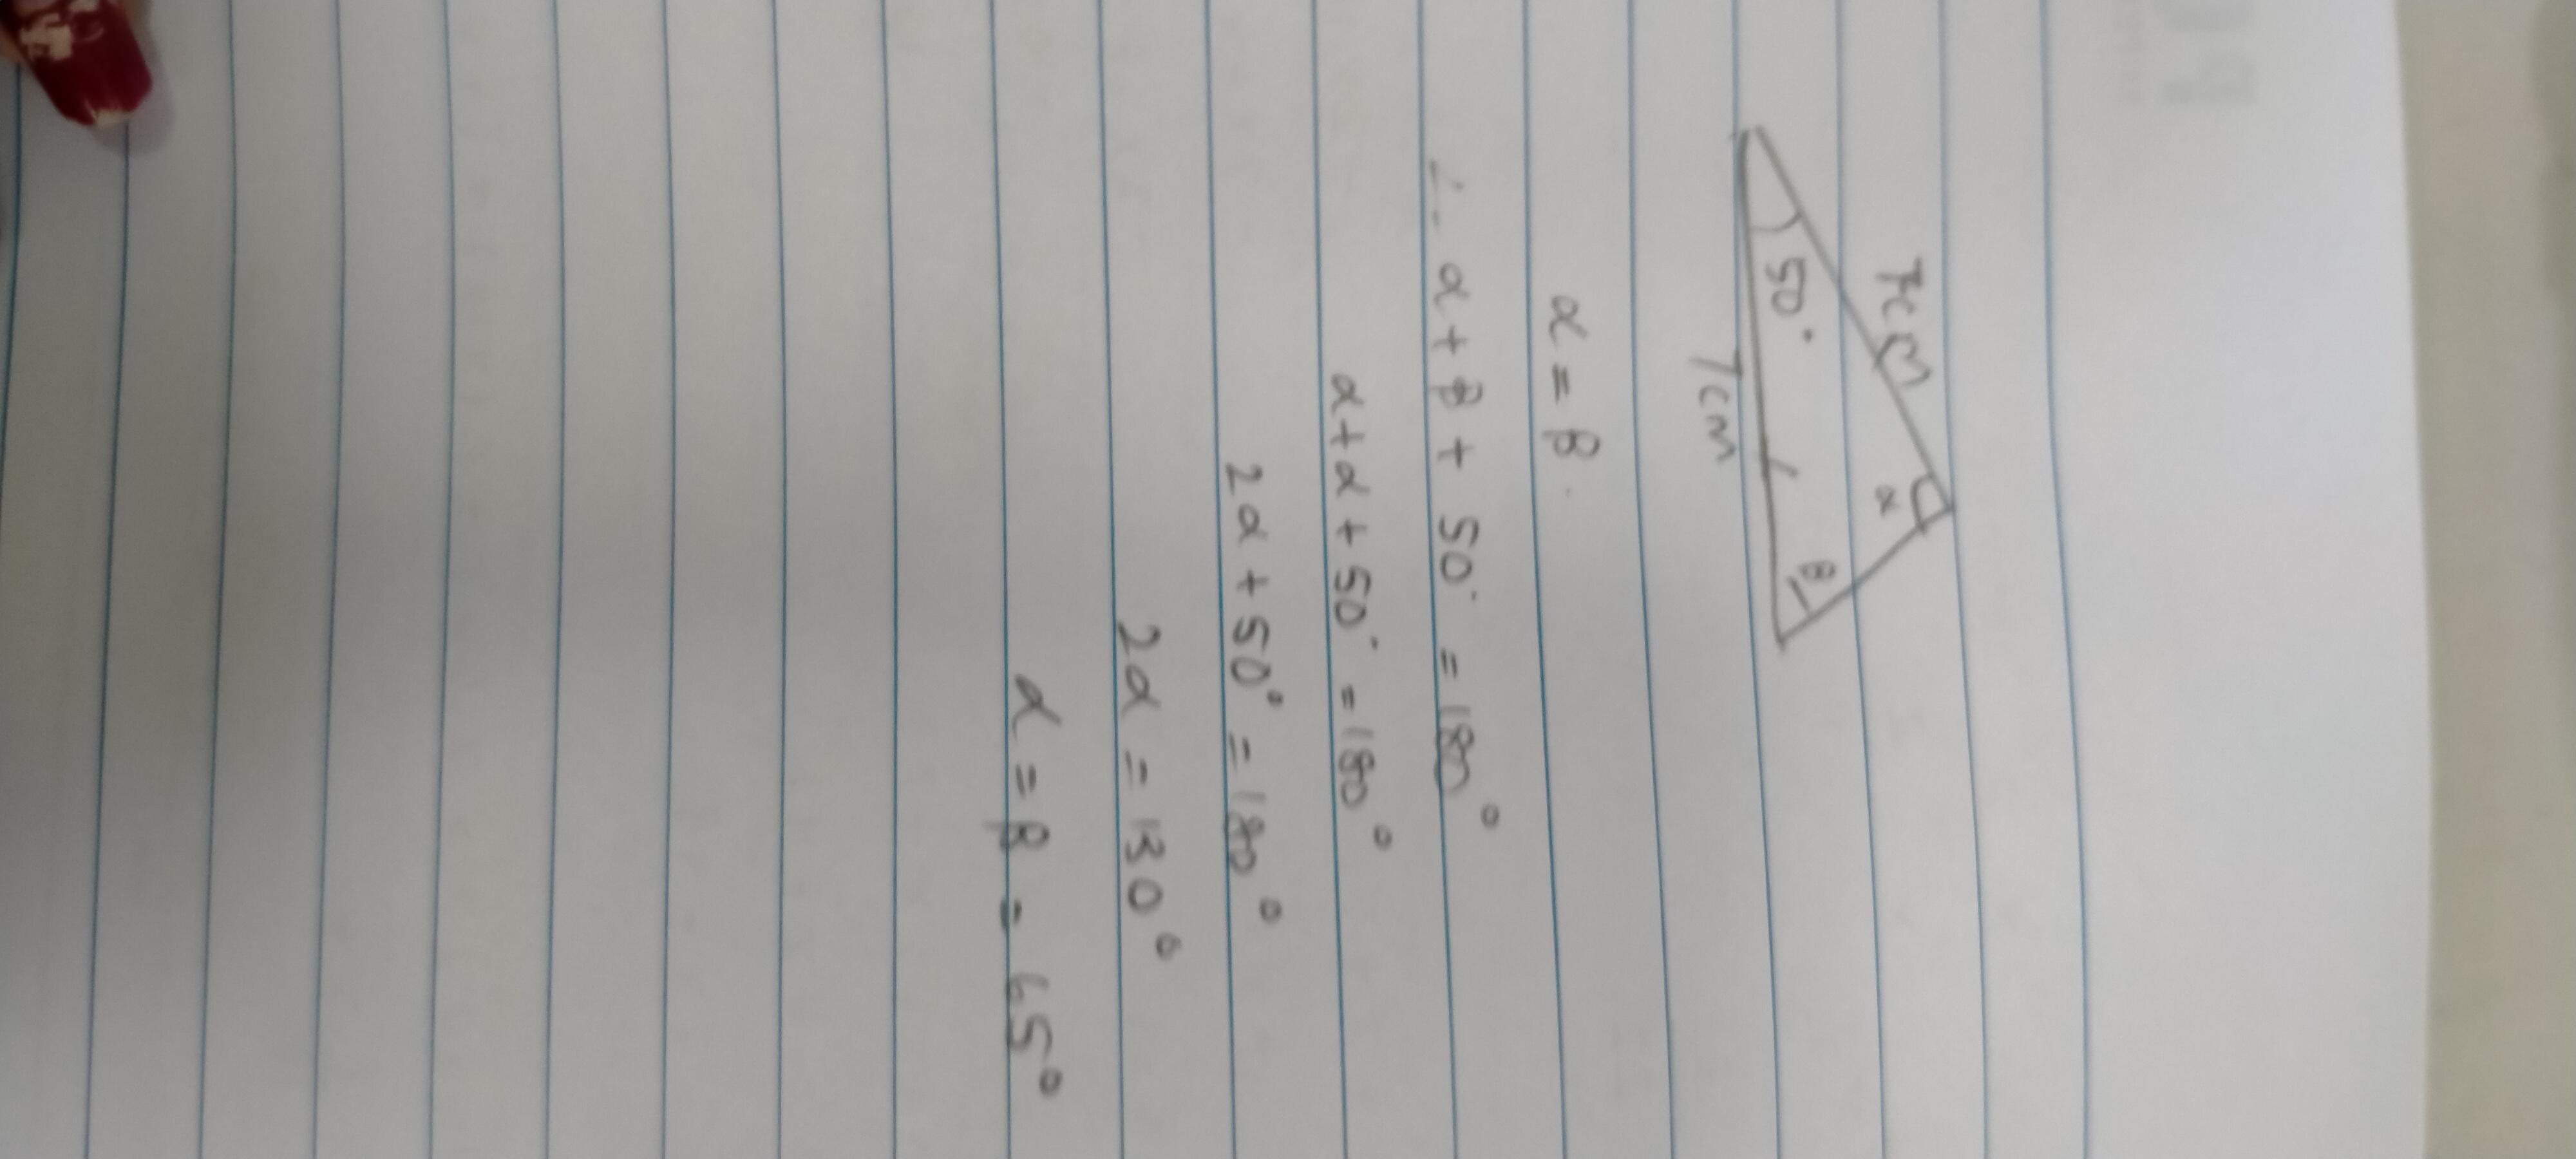 7cm
α
50°
β
7cm
α = β
∴ α + β + 50° = 180°
α + α + 50° = 180°
2α + 50° = 180°
2α = 130°
α = β = 65°